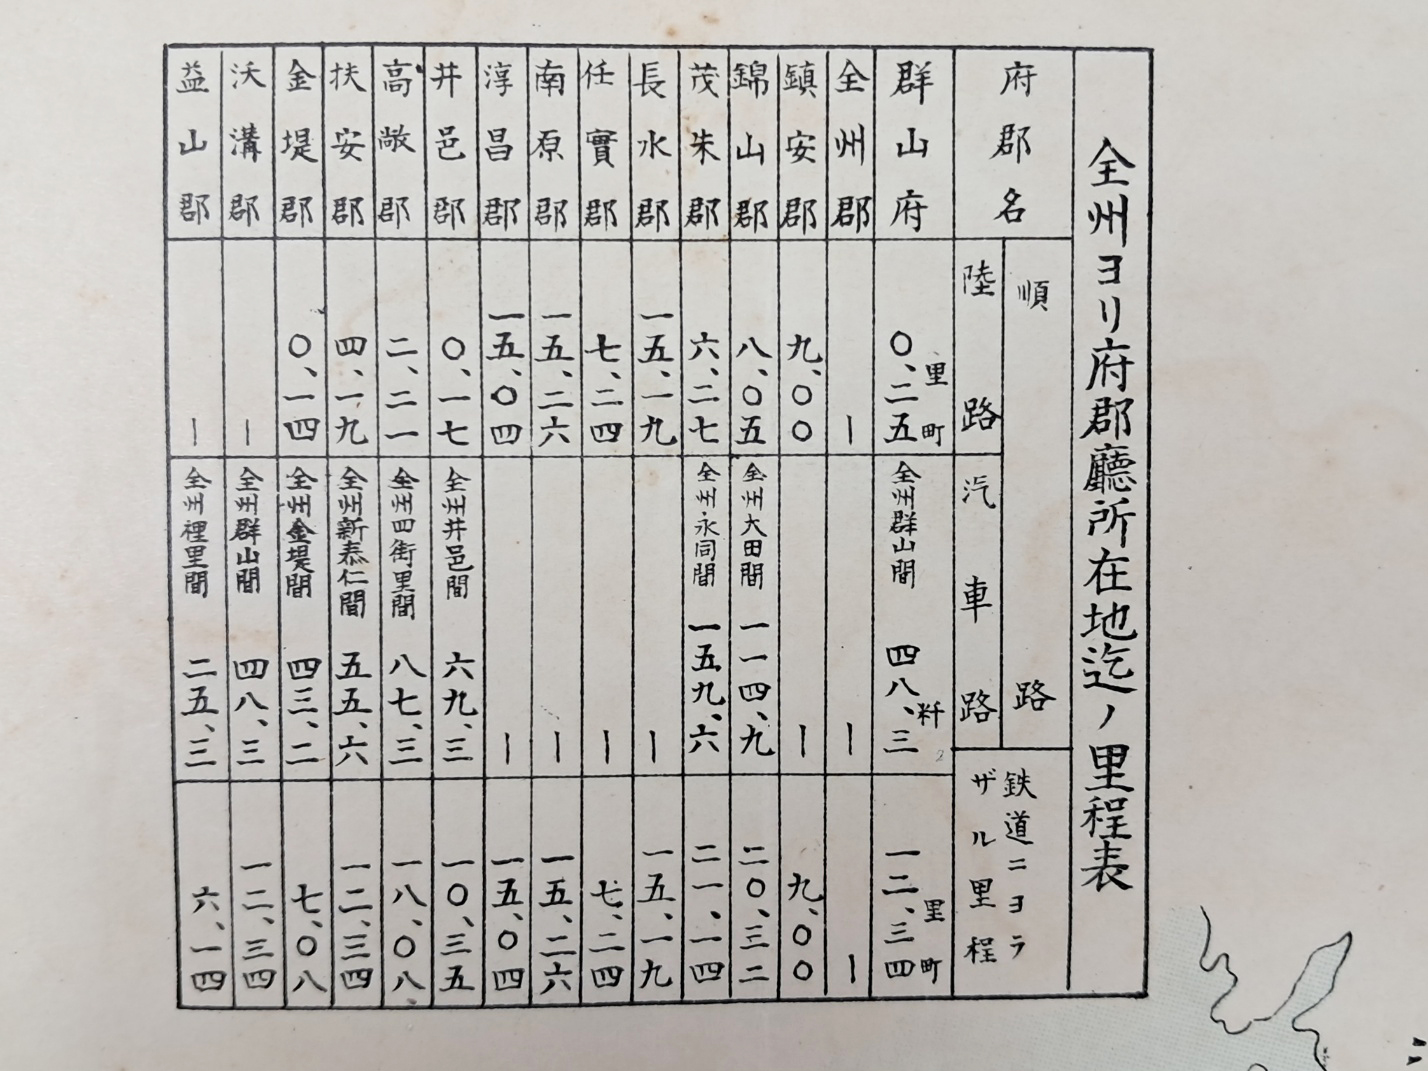 全州ヨリ府郡廳所在地迄ノ里程表
府郡名
順路
陸路
汽車路
鉄道ニヨラ
ザル里程
群山府 〇、二五 里町 全州群山間 四八、三 粁 一二、三四 里町
全州郡 ー ー ー
鎮安郡 九、〇〇 ー 九、〇〇
錦山郡 八、〇五 全州大田間 一一四、九 二〇、三二
茂朱郡 六、二七 全州永同間 一五九、六 二一、一四
長水郡 一五、一九 ー 一五、一九
任實郡 七、二四 ー 七、二四
南原郡 一五、二六 ー 一五、二六
淳昌郡 一五、〇四 ー 一五、〇四
井邑郡 〇、一七 全州井邑間 六九、三 一〇、三五
高敞郡 二、二一 全州四街里間 八七、三 一八、〇八
扶安郡 四、一九 全州新泰仁間 五五、六 一二、三四
金堤郡 〇、一四 全州金堤間 四三、二 七、〇八
沃溝郡 ー 全州群山間 四八、三 一二、三四
益山郡 ー 全州裡里間 二五、三 六、一四